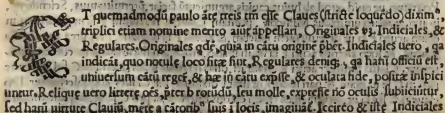 ET quemadmodũ paulo ãte treis tm̃ esse Claues (stricte loquẽdo) diximꝰ
triplici etiam nomine merito aiũt appellari, Originales vz. Indiciales, &
Regulares. Originales qdẽ, quia in cãtu originẽ p̃bẽt. Indiciales uero, qa
indicãt, quo notulę loco sitæ sint, Regulares deniqꝫ, qa harũ officiũ est,
uniuersum cãtũ regeř, & hæ in cãtu exp̃sse, & oculata fide, positæ inspici
untur. Relique uero litterę oẽs, p̃ter b rotũdũ, seu molle, exp̃resse nõ oculis subiiciuntur,
sed harũ uirtute Clauiũ, mẽte a cãtoribꝰ suis ĩ locis, imaginãt̃. Icceirco & istę Indiciales